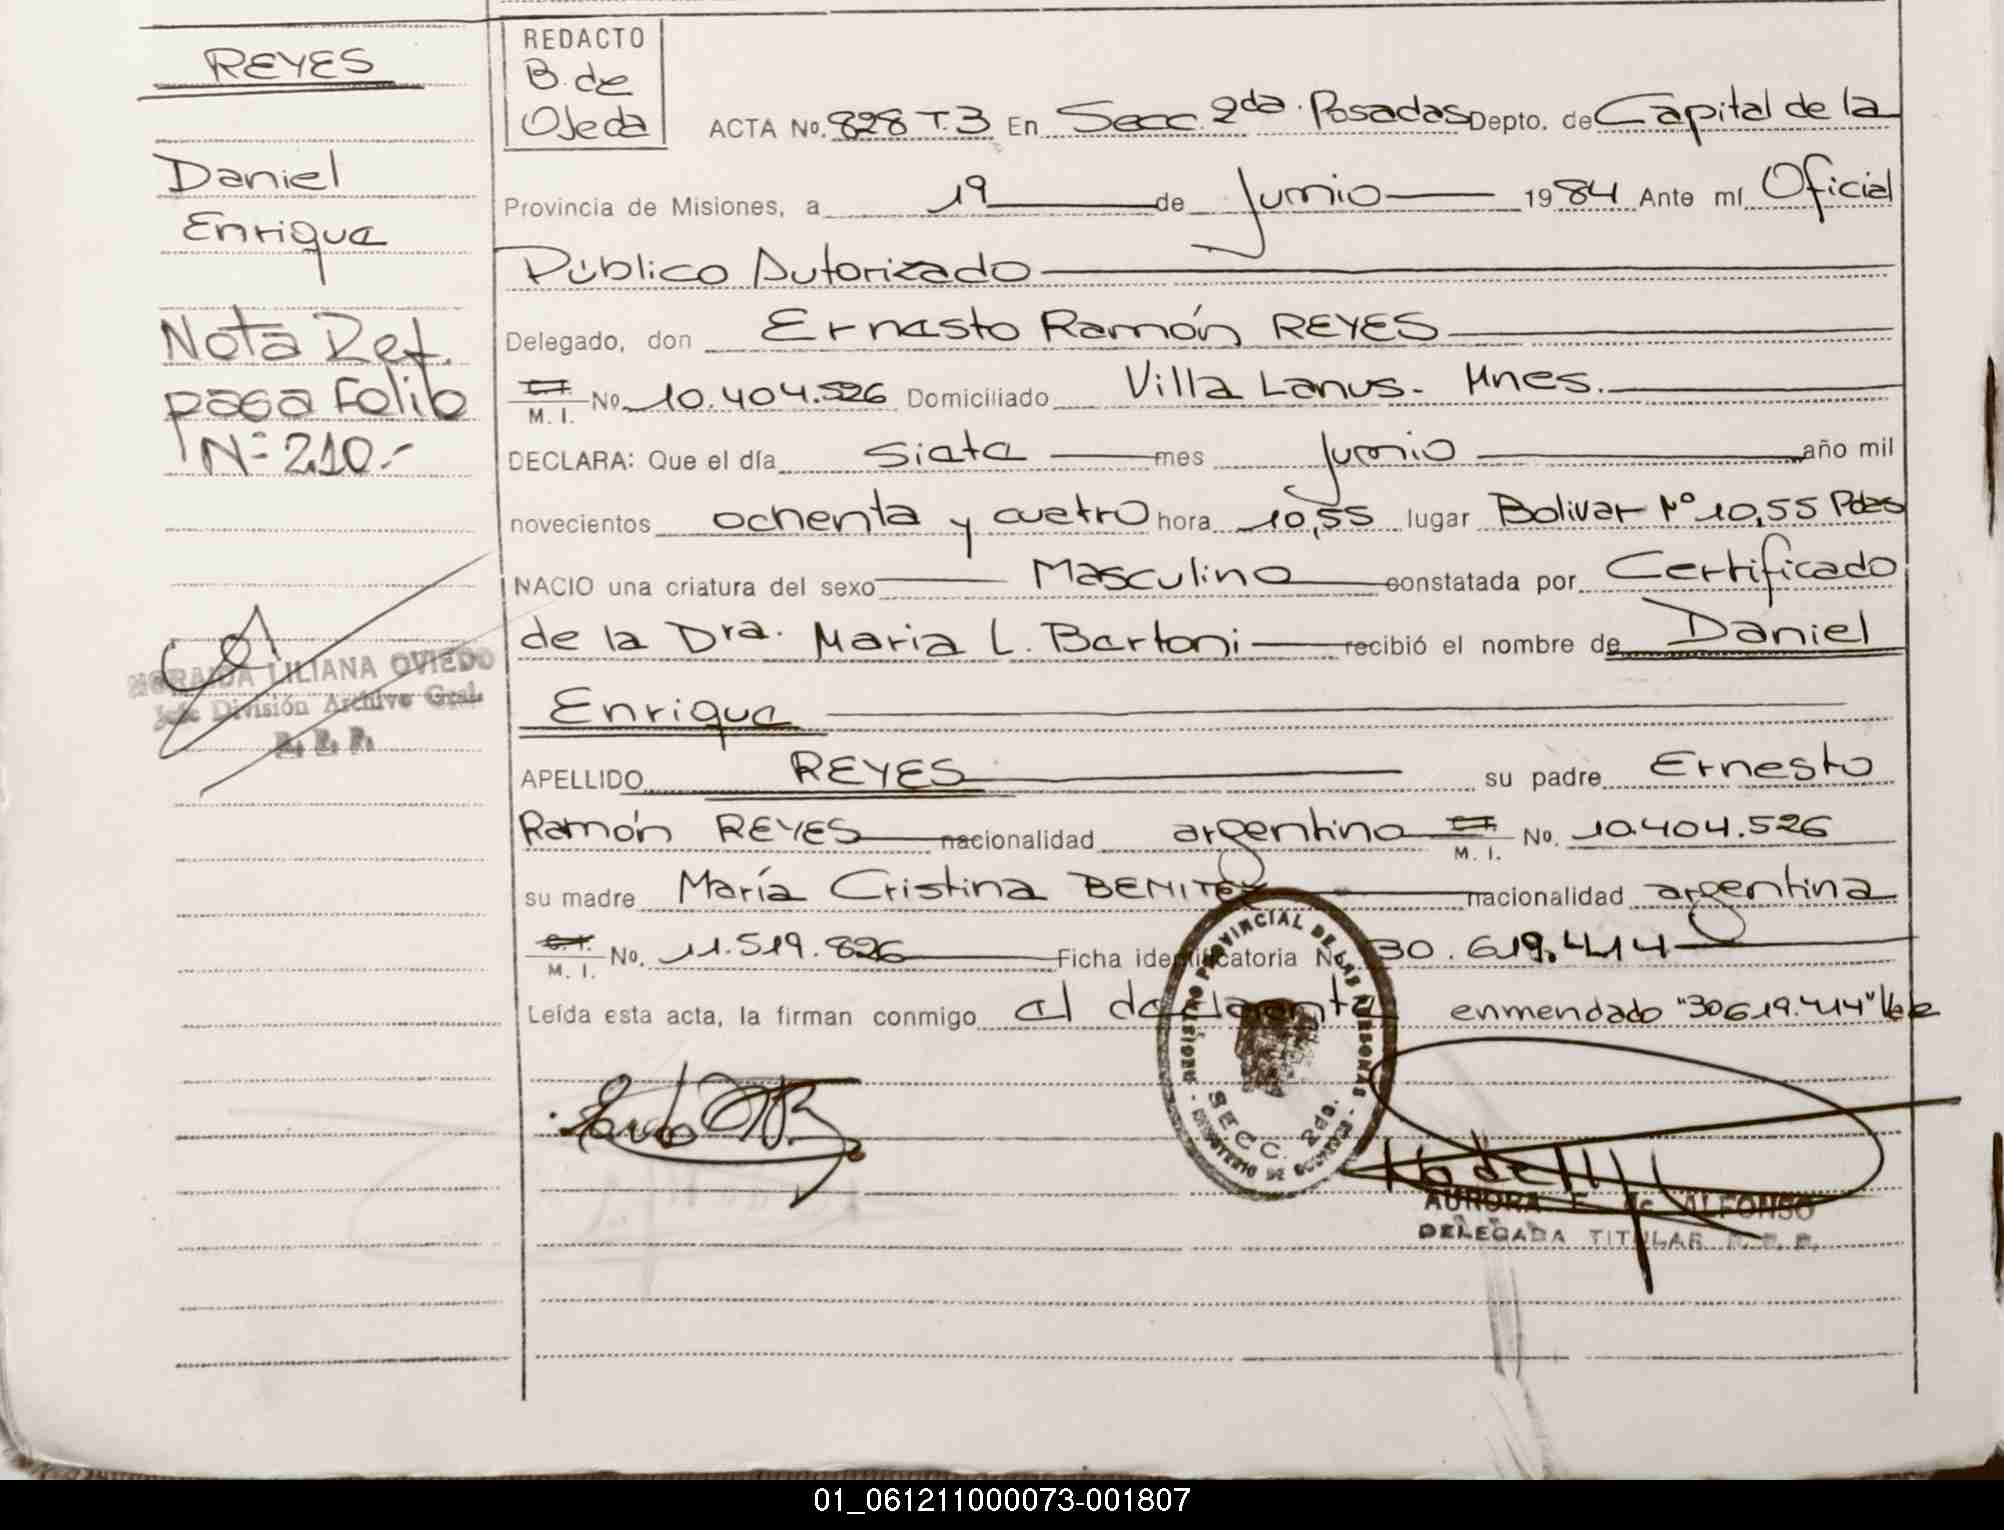 REYES
Daniel
Enrique
Nota Ref.
pasa Folio
Nº 210.-
LILIANA OVIEDO
Jefe División Archivo Gral.
R. P. P.
REDACTO
B. de
Ojeda
ACTA No. 828 T.3 En Secc. 2da. Posadas Depto. de Capital de la
Provincia de Misiones, a 19 de Junio 1984 Ante mí Oficial
Público Autorizado
Delegado, don Ernesto Ramón REYES
M. I. No. 10.404.526 Domiciliado Villa Lanus. Mnes.
DECLARA: Que el día Siete mes Junio año mil
novecientos ochenta y cuatro hora 10,55 lugar Bolivar Nº 10,55 Pdas
NACIO una criatura del sexo Masculino constatada por Certificado
de la Dra. Maria L. Bertoni recibió el nombre de Daniel
Enrique
APELLIDO REYES su padre Ernesto
Ramón REYES nacionalidad argentino M. I. No. 10.404.526
su madre María Cristina BENITEZ nacionalidad argentina
M. I. No. 11.519.826 Ficha identificatoria No 30.619.414
Leída esta acta, la firman conmigo el declarante enmendado "30619.414" Vale
REGISTRO PROVINCIAL DE LAS PERSONAS
SECC. 2da.
MINISTERIO DE GOBIERNO
AURORA F. de ALFONSO
DELEGADA TITULAR R. P. P.
01_061211000073-001807